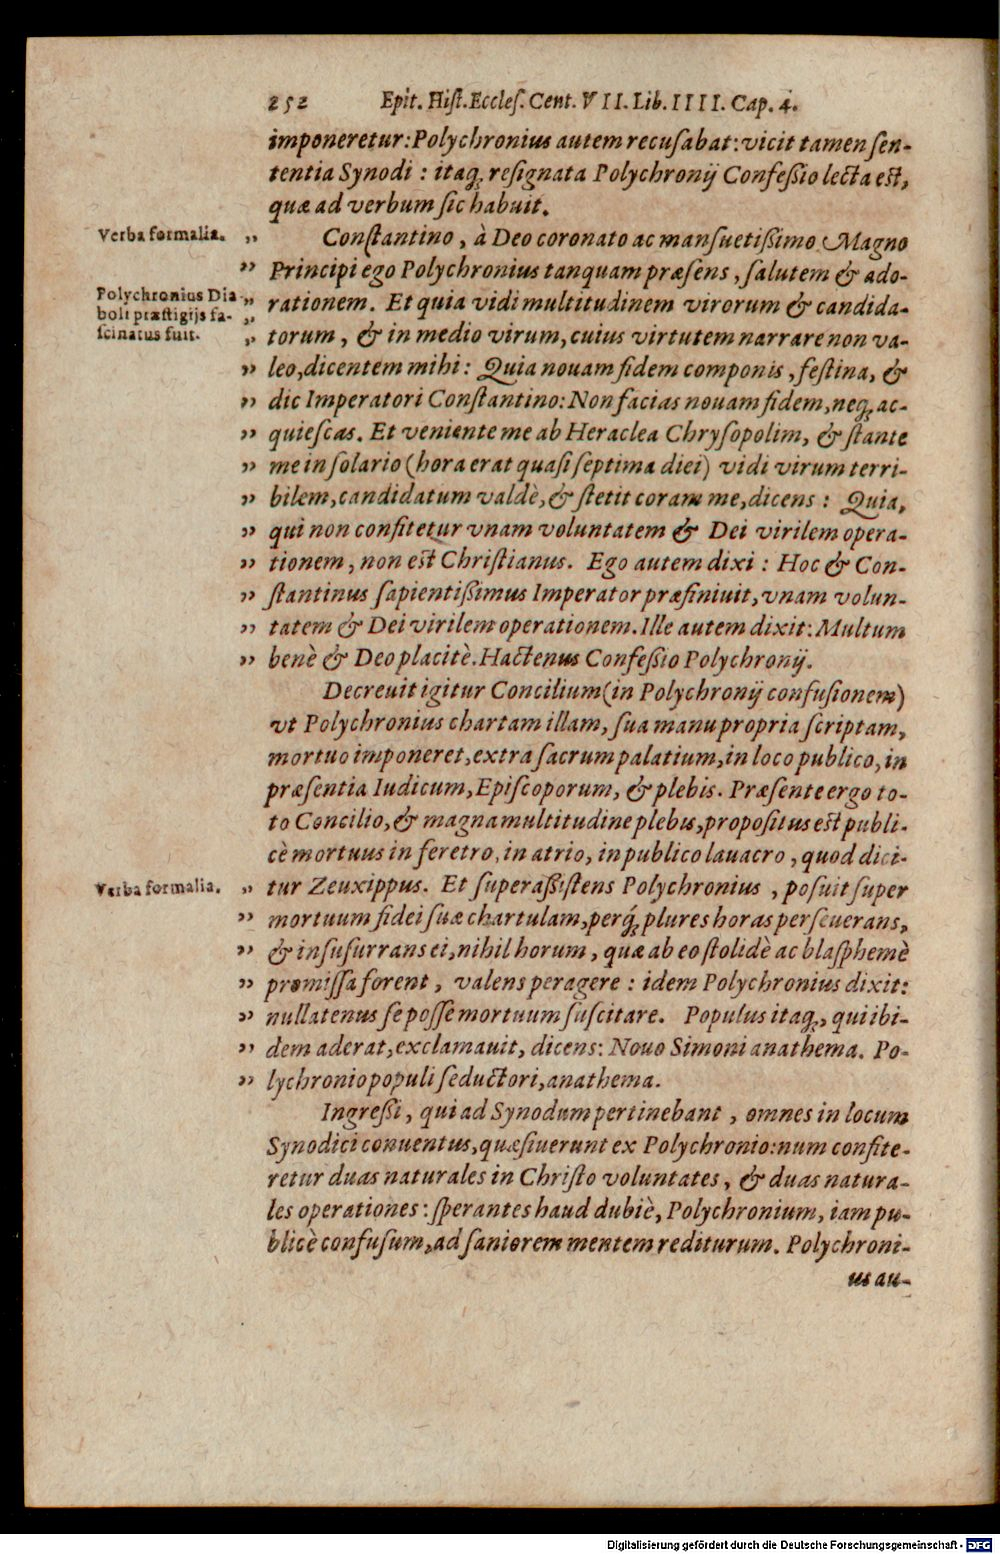 252 Epit. Hiſt. Eccleſ. Cent. VII. Lib. IIII. Cap. 4.
imponeretur: Polychronius autem recuſabat: vicit tamen ſen-
tentia Synodi : itaq; reſignata Polychronij Confeßio lecta eſt,
quæ ad verbum ſic habuit.
Verba formalia. „ Conſtantino, à Deo coronato ac manſuetißimo Magno
„ Principi ego Polychronius tanquam præſens, ſalutem & ado-
Polychronius Dia- „ rationem. Et quia vidi multitudinem virorum & candida-
boli præſtigijs fa- „
ſcinatus fuit. „ torum, & in medio virum, cuius virtutem narrare non va-
„ leo, dicentem mihi: Quia nouam fidem componis, feſtina, &
„ dic Imperatori Conſtantino: Non facias nouam fidem, neq; ac-
„ quieſcas. Et veniente me ab Heraclea Chryſopolim, & ſtante
„ me in ſolario (hora erat quaſi ſeptima diei) vidi virum terri-
„ bilem, candidatum valdè, & ſtetit coram me, dicens : Quia,
„ qui non confitetur vnam voluntatem & Dei virilem opera-
„ tionem, non eſt Chriſtianus. Ego autem dixi : Hoc & Con-
„ ſtantinus ſapientißimus Imperator præfiniuit, vnam volun-
„ tatem & Dei virilem operationem. Ille autem dixit: Multum
„ benè & Deo placitè. Hactenus Confeßio Polychronij.
Decreuit igitur Concilium (in Polychronij confuſionem)
vt Polychronius chartam illam, ſua manu propria ſcriptam,
mortuo imponeret, extra ſacrum palatium, in loco publico, in
præſentia Iudicum, Epiſcoporum, & plebis. Præſente ergo to-
to Concilio, & magna multitudine plebis, propoſitus eſt publi-
cè mortuus in feretro, in atrio, in publico lauacro, quod dici-
Verba formalia. „ tur Zeuxippus. Et ſuperaßiſtens Polychronius, poſuit ſuper
„ mortuum fidei ſuæ chartulam, perq́; plures horas perſeuerans,
„ & inſuſurrans ei, nihil horum, quæ ab eo ſtolidè ac blaſphemè
„ promiſſa forent, valens peragere : idem Polychronius dixit:
„ nullatenus ſe poſſe mortuum ſuſcitare. Populus itaq;, qui ibi-
„ dem aderat, exclamauit, dicens: Nouo Simoni anathema. Po-
„ lychronio populi ſeductori, anathema.
Ingreßi, qui ad Synodum pertinebant, omnes in locum
Synodici conuentus, quæſiuerunt ex Polychronio: num confite-
retur duas naturales in Chriſto voluntates, & duas natura-
les operationes: ſperantes haud dubiè, Polychronium, iam pu-
blicè confuſum, ad ſaniorem mentem rediturum. Polychroni-
us au-
Digitalisierung gefördert durch die Deutsche Forschungsgemeinschaft - DFG